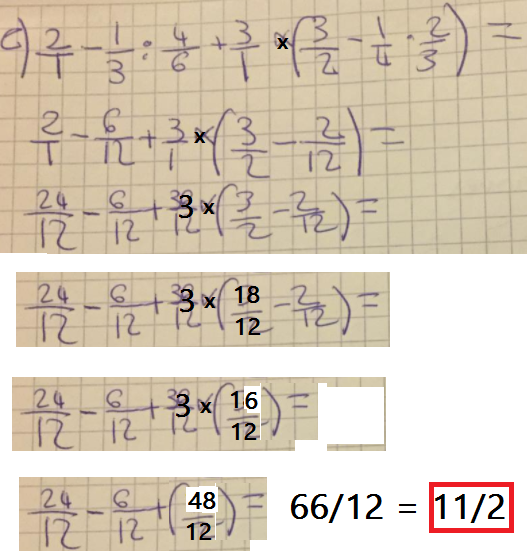 c) 2/1 - 1/3 : 4/6 + 3/1 x (3/2 - 1/4 · 2/3) =
2/1 - 6/12 + 3/1 x (3/2 - 2/12) =
24/12 - 6/12 + 3 x (3/2 - 2/12) =
24/12 - 6/12 + 3 x (18/12 - 2/12) =
24/12 - 6/12 + 3 x (16/12) =
24/12 - 6/12 + (48/12) = 66/12 = 11/2